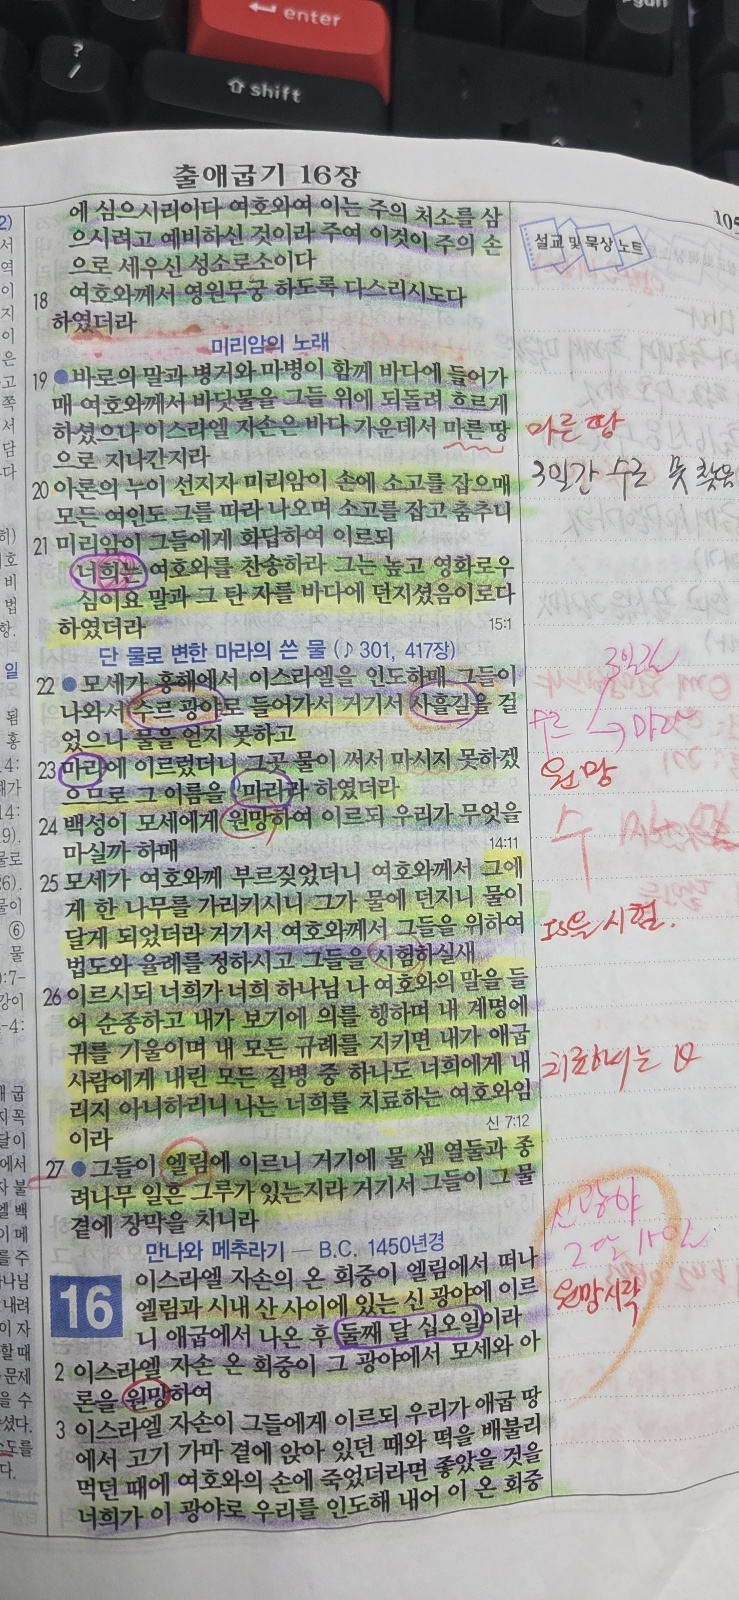 ?
/
enter
shift
출애굽기 16장
105
에 심으시리이다 여호와여 이는 주의 처소를 삼
으시려고 예비하신 것이라 주여 이것이 주의 손
으로 세우신 성소로소이다
설교 및 묵상 노트
18 여호와께서 영원무궁 하도록 다스리시도다
하였더라
미리암의 노래
19 ●바로의 말과 병거와 마병이 함께 바다에 들어가
매 여호와께서 바닷물을 그들 위에 되돌려 흐르게
하셨으나 이스라엘 자손은 바다 가운데서 마른 땅
마른 땅
으로 지나간지라
3일간 수르 못 찾음
20 아론의 누이 선지자 미리암이 손에 소고를 잡으매
모든 여인도 그를 따라 나오며 소고를 잡고 춤추니
21 미리암이 그들에게 화답하여 이르되
너희는 여호와를 찬송하라 그는 높고 영화로우
심이요 말과 그 탄 자를 바다에 던지셨음이로다
하였더라
15:1
단 물로 변한 마라의 쓴 물 (♪ 301, 417장)
3일간
22 ●모세가 홍해에서 이스라엘을 인도하매 그들이
나와서 수르 광야로 들어가서 거기서 사흘길을 걸
수르 → 마라
었으나 물을 얻지 못하고
23 마라에 이르렀더니 그곳 물이 써서 마시지 못하겠
원망
으므로 그 이름을 마라라 하였더라
24 백성이 모세에게 원망하여 이르되 우리가 무엇을
마실까 하매
14:11
25 모세가 여호와께 부르짖었더니 여호와께서 그에
게 한 나무를 가리키시니 그가 물에 던지니 물이
달게 되었더라 거기서 여호와께서 그들을 위하여
IS을 시험.
법도와 율례를 정하시고 그들을 시험하실새
26 이르시되 너희가 너희 하나님 나 여호와의 말을 들
어 순종하고 내가 보기에 의를 행하며 내 계명에
귀를 기울이며 내 모든 규례를 지키면 내가 애굽
사람에게 내린 모든 질병 중 하나도 너희에게 내
치료하여는
리지 아니하리니 나는 너희를 치료하는 여호와임
이라
신 7:12
27 ●그들이 엘림에 이르니 거기에 물 샘 열둘과 종
려나무 일흔 그루가 있는지라 거기서 그들이 그 물
곁에 장막을 치니라
신 광야
2달 15일
원망시작
만나와 메추라기 — B.C. 1450년경
16 이스라엘 자손의 온 회중이 엘림에서 떠나
엘림과 시내 산 사이에 있는 신 광야에 이르
니 애굽에서 나온 후 둘째 달 십오일이라
2 이스라엘 자손 온 회중이 그 광야에서 모세와 아
론을 원망하여
3 이스라엘 자손이 그들에게 이르되 우리가 애굽 땅
에서 고기 가마 곁에 앉아 있던 때와 떡을 배불리
먹던 때에 여호와의 손에 죽었더라면 좋았을 것을
너희가 이 광야로 우리를 인도해 내어 이 온 회중